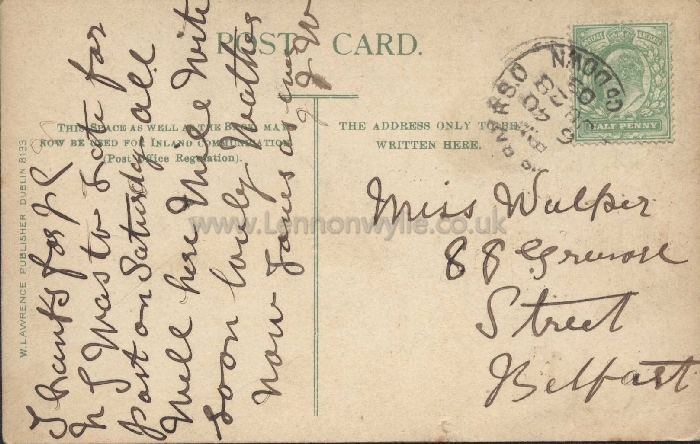 POST CARD.
THIS SPACE AS WELL AS THE BACK MAY
NOW BE USED FOR INLAND COMMUNICATION
(Post Office Regulation).
THE ADDRESS ONLY TO BE
WRITTEN HERE.
W. LAWRENCE PUBLISHER DUBLIN 8133
HALF PENNY
CO DOWN
Thanks for
I Was to Late for
Post on Saturday all
Well here Mill Write
Soon lovly Weather
Now yours as ever
J W
Miss Walper
88 Street
Belfast
www.Lennonwylie.co.uk